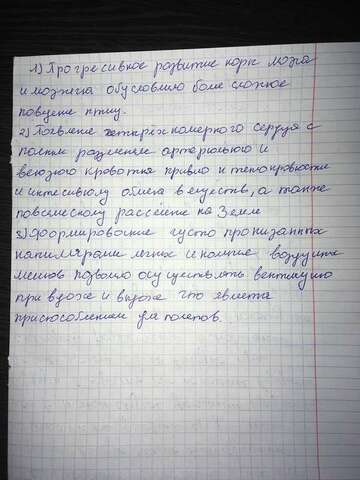 1) Прогресивное развитие коры мозга
и мозжечка обусловило боле сложное
поведение птиц.
2) Появление четырёхкамерного сердца с
полным разделением артериального и
венозного кровотока привело и теплокровности
и интесивному обмена веществ, а также
повсеместному рассееление на Земле
3) Формирование густо пронизанных
капилярами легких и наличие воздушных
мешков позволило осуществлять вентиляцию
при вдохе и выдохе что является
приспособлением для полетов.